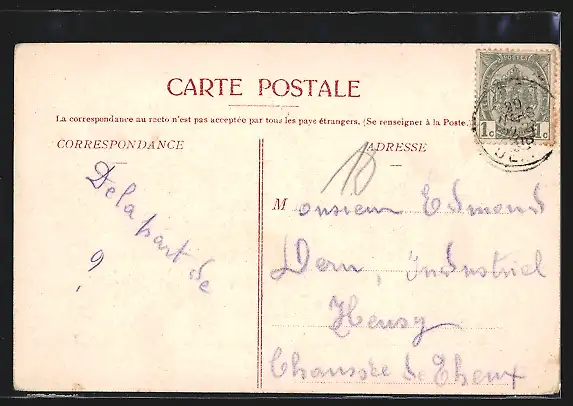 CARTE POSTALE
La correspondance au recto n'est pas acceptée par tous les pays étrangers. (Se renseigner à la Poste.)
CORRESPONDANCE
De la part de
?
ADRESSE
18
Monsieur Edmond
Dern, Industriel
Heusy
Chaussée de Theux
POSTES
1c 1c